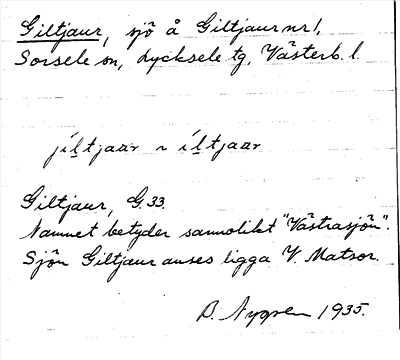 Giltjaur, sjö å Giltjaur nr 1,
Sorsele sn, Lycksele tg, Västerb. l.
jiltjaar ~ iltjaar
Giltjaur, G 33.
Namnet betyder sannolikt "Västrasjön".
Sjön Giltjaur anses ligga V. Matsor.
B. Nygren 1935.